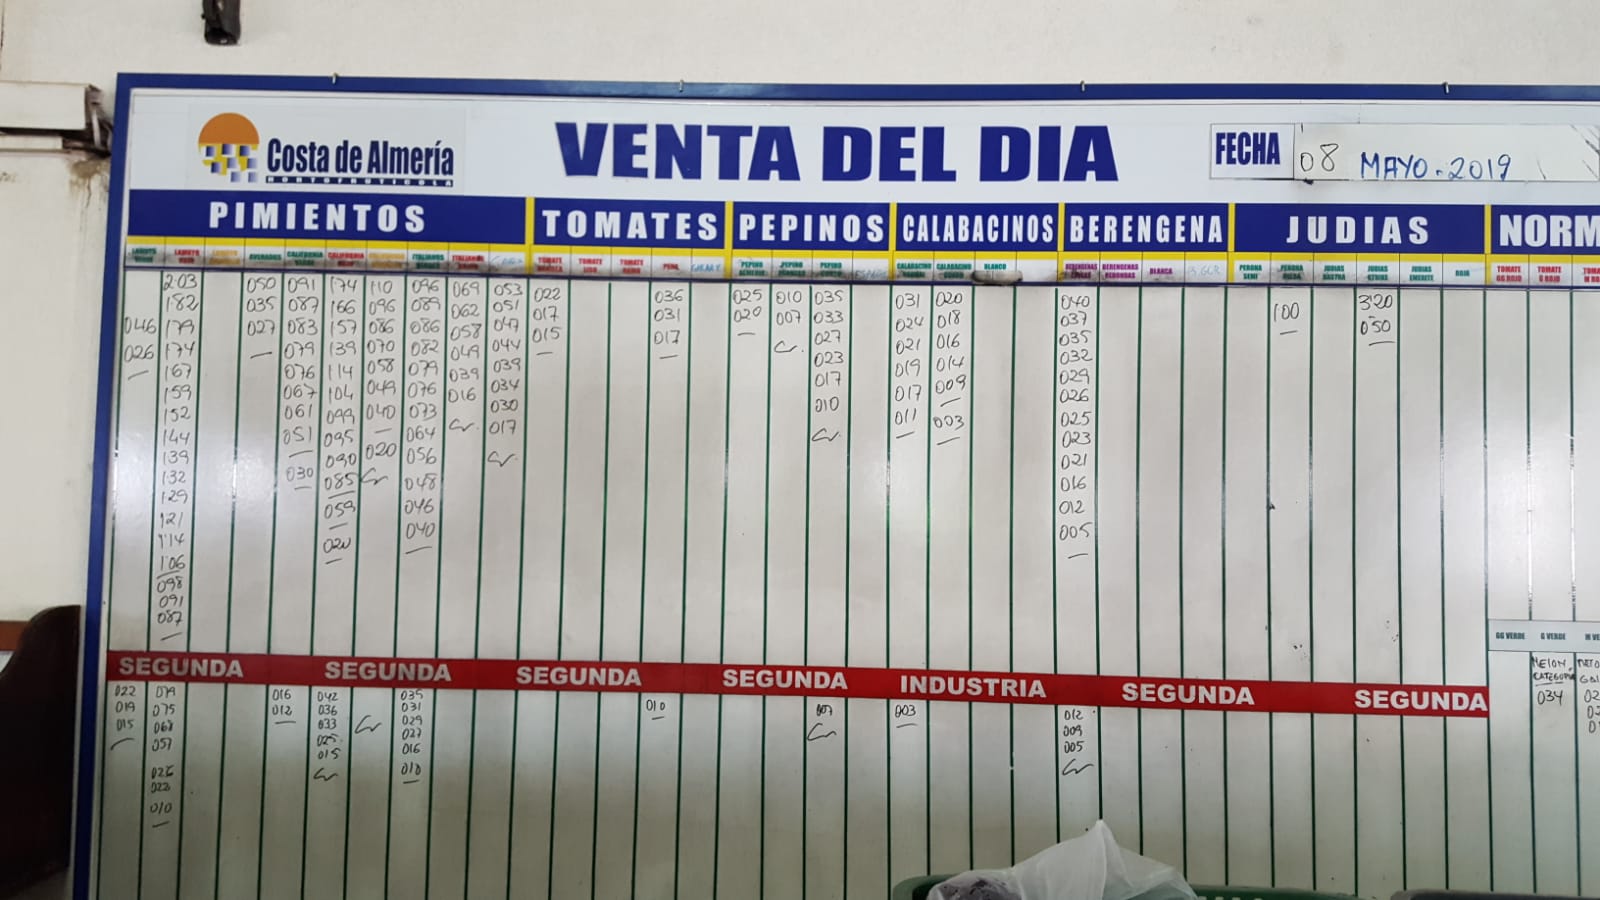 Costa de Almería
HORTOFRUTICOLA
VENTA DEL DIA
FECHA
08 MAYO-2019
PIMIENTOS TOMATES PEPINOS CALABACINOS BERENGENA JUDIAS NORM
LAMUYO VERDE
046
026
LAMUYO ROJO
203
182
179
174
167
159
152
144
139
132
129
121
114
106
098
091
087
ASURADOS
050
035
027
CALIFORNIA VERDE
091
087
083
079
076
067
061
051
030
CALIFORNIA ROJO
174
166
157
139
114
104
099
095
090
085
059
020
110
096
086
070
058
049
040
020
ITALIANOS VERDES
096
089
086
082
079
076
073
064
056
048
046
040
069
062
058
049
039
016
053
051
047
044
039
034
030
017
022
017
015
TOMATE LISO
TOMATE RAMO
PERA
036
031
017
PEPINO ALMERIA
025
020
PEPINO FRANCES
010
007
035
033
027
023
017
010
CALABACINO
031
024
021
019
017
011
CALABACINO GORDO
020
018
016
014
009
003
BLANCO
BERENGENAS
040
037
035
032
029
026
025
023
021
016
012
005
BERENGENAS
BLANCA
PERONA SEMI
PERONA
100
JUDIAS RASTRA
JUDIAS
320
050
JUDIAS EMERITE
ROJO
TOMATE GG ROJO
TOMATE G ROJO
GG VERDE
G VERDE
MELON
CATEGORIA
034
SEGUNDA SEGUNDA SEGUNDA SEGUNDA INDUSTRIA SEGUNDA SEGUNDA
022
019
015
079
075
068
057
026
022
010
016
012
042
036
033
025
015
035
031
029
027
016
010
010
007
003
012
009
005